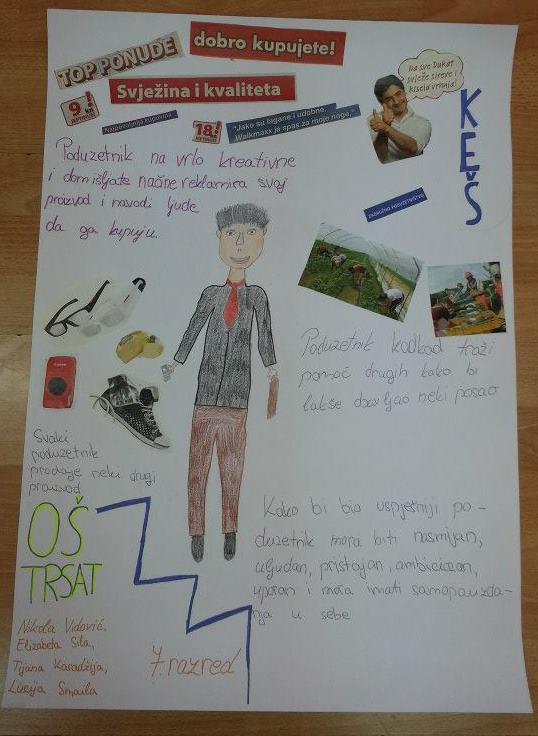 TOP PONUDE
dobro kupujete!
Svježina i kvaliteta
9
kn
Najpovoljnija kupovina
18
kn
"Jako su lagane i udobne.
Walkmaxx je spas za moje noge."
Na sve Dukat
svježe sireve i
kisela vrhnja!
KEŠ
Poduzetnik na vrlo kreativne
i domišljate načine reklamira svoj
proizvod i navodi ljude
da ga kupuju.
Poduzetnik kadkad traži
pomoć drugih kako bi
lakše obavljao neki posao
Svaki
poduzetnik
prodaje neki drugi
proizvod
OŠ
TRSAT
Kako bi bio uspješniji po-
duzetnik mora biti nasmijan,
uljudan, pristojan, ambiciozan,
uporan i mora imati samopouzda-
nja u sebe
Nikola Vidović,
Elizabeta Sila,
Tijana Karadžija,
Lucija Smaila
7. razred